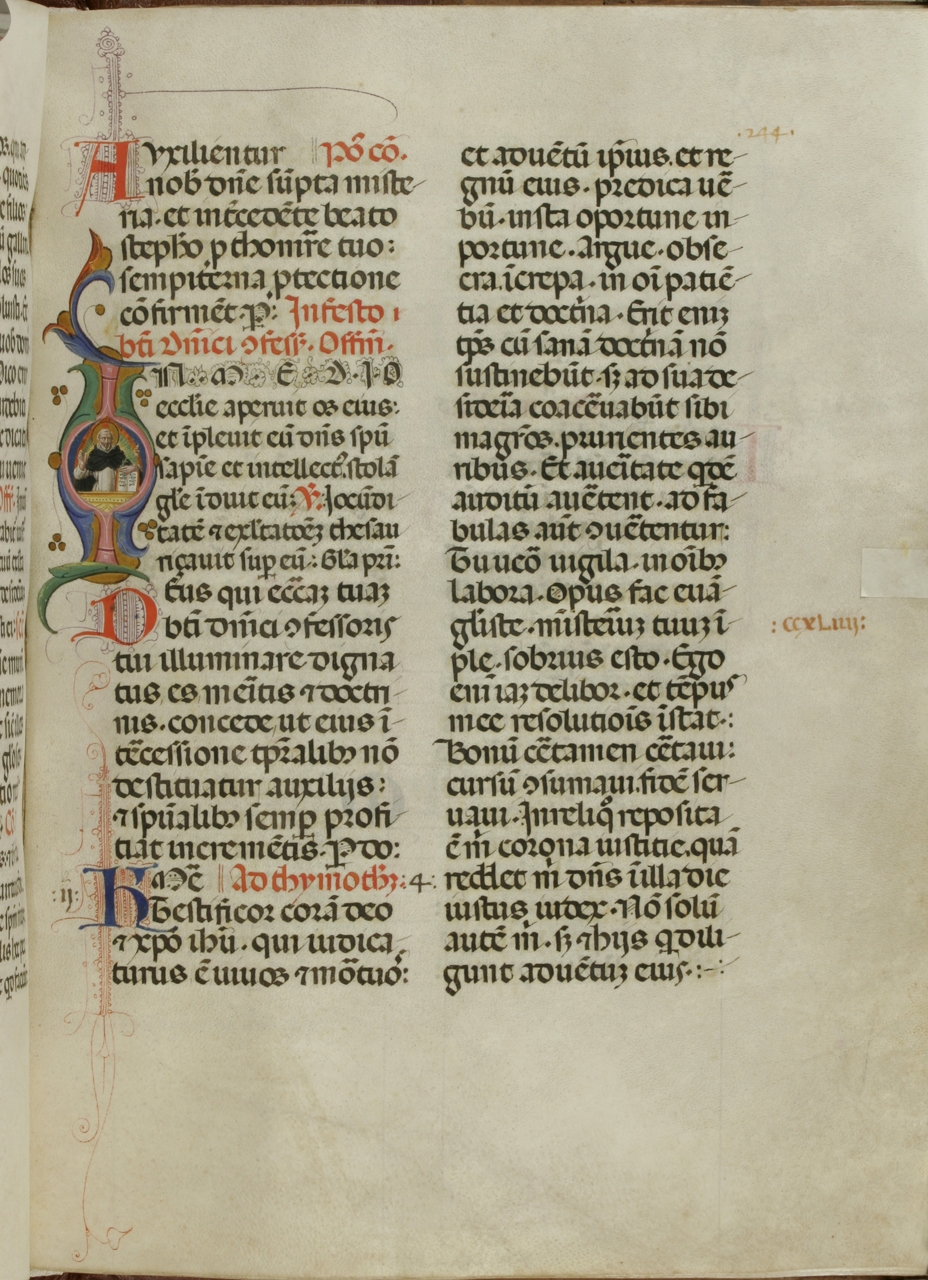 .244.
Auxilientur Pō cō.
nob̄ dn̄e sūpta miste
ria. et int̄cedēte beato
steph̄o p thom̄re tuo:
sempit̄erna ptectione
cōfirmēt. P: In festo ı
bt̄i Dn̄ici ɔfess̄. Offm̄.
IN. M. E. D. I. O
ecclīe aperuit os eius:
et īpleuit eū dn̄s spū
sapīe et intellect̄. stolā
glē īduit eū: V̄. Jocūdi
tatē ⁊ exl̄tatōeꝫ thesau
riçauit sup eū: Gl̄a prī:
Deus qui eccāꝫ tuaꝫ
bt̄i dn̄ici ɔfessoris
tui illuminare digna
tus es mēītis ⁊ doctri
nis. concede ut eius ī
t̄cessione tp̄ralibꝫ nō
destituatur auxilijs:
⁊ spūalibꝫ semp profi
tiat incremētis. P do:
Kamē Ad thymoth̄: 4.
:ij:
Testificor corā deo
⁊ xpō ihū. qui iudica
turus ē uiuos ⁊ mōtuo:
et aduētū ip̄ius. et re
gnū eius. predica uē
bū. insta oportune in
portune. Argue. obse
cra. īcrepa. in oī patiē
tia et doctn̄a. Erit eniꝫ
tp̄s cū sanā doctn̄ā nō
sustinebūt. sꝫ ad sua de
sideīa coac̄euabūt sibi
magr̄os. prurientes au
ribus. Et aueītate qdē
auditū au̅ētent. ad fa
bulas aūt ɔu̅ētentur:
Tu ueō uigila. in oībꝫ
labora. Opus fac euā
gl̄iste. misteīuꝫ tuuꝫ ī
:ccxLiiij:
ple. sobrius esto. Ego
enī iaꝫ delibor. et tēpus
mee resolutiōis īstat.:
Bonū c̄etamen c̄etaui:
cursū ɔsumaui. fidē ser
uaui. In reliq̊ reposita
ē m̄ corona iustitie. quā
reddet m̄ dn̄s ī illa die
iustus iudex. Nō solū
autē m̄. sꝫ ⁊ hijs q dili
gunt aduētuꝫ eius.:-: